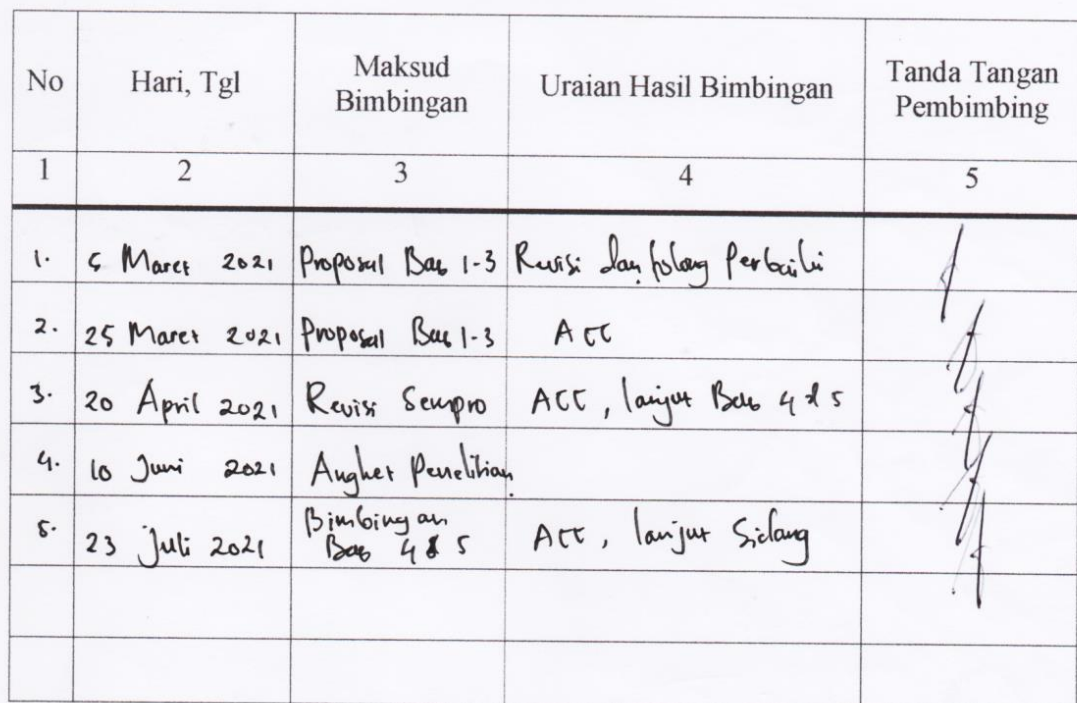 No Hari, Tgl Maksud Bimbingan Uraian Hasil Bimbingan Tanda Tangan Pembimbing
1 2 3 4 5
1. 5 Maret 2021 Proposal Bab 1-3 Revisi dan tolong Perbaiki
2. 25 Maret 2021 Proposal Bab 1-3 ACC
3. 20 April 2021 Revisi Sempro ACC, lanjut Bab 4 & 5
4. 10 Juni 2021 Angket Penelitian
5. 23 Juli 2021 Bimbingan Bab 4 & 5 ACC, lanjut Sidang